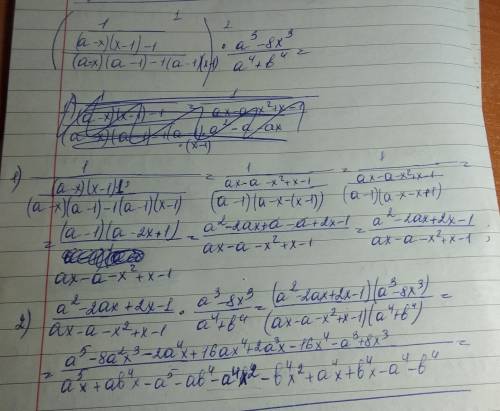 1 2
( 1 / ((a-x)(x-1)-1 / (a-x)(a-1)-1(a-1)(x-1)) ) · (a³-8x³)/(a⁴+b⁴) =
1) 1 / ((a-x)(x-1)1 / (a-x)(a-1)-1(a-1)(x-1)) = 1 / (ax-a-x²+x-1 / (a-1)(a-x-(x-1))) = 1 / (ax-a-x²+x-1 / (a-1)(a-x-x+1)) =
= (a-1)(a-2x+1) / (ax-a-x²+x-1) = (a²-2ax+a-a+2x-1) / (ax-a-x²+x-1) = (a²-2ax+2x-1) / (ax-a-x²+x-1) ;
2) (a²-2ax+2x-1) / (ax-a-x²+x-1) · (a³-8x³) / (a⁴+b⁴) = (a²-2ax+2x-1)(a³-8x³) / (ax-a-x²+x-1)(a⁴+b⁴) =
= (a⁵-8a²x³-2a⁴x+16ax⁴+2a³x-16x⁴-a³+8x³) / (a⁵x+ab⁴x-a⁵-ab⁴-a⁴x²-b⁴x²+a⁴x+b⁴x-a⁴-b⁴) =